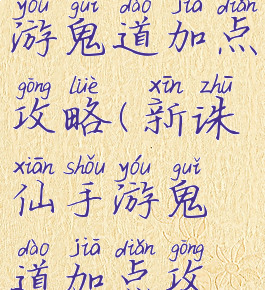 yóu guǐ dào jiā diǎn
游鬼道加点
gōng lüè xīn zhū
攻略(新诛
xiān shǒu yóu guǐ
仙手游鬼
dào jiā diǎn gōng
道加点攻